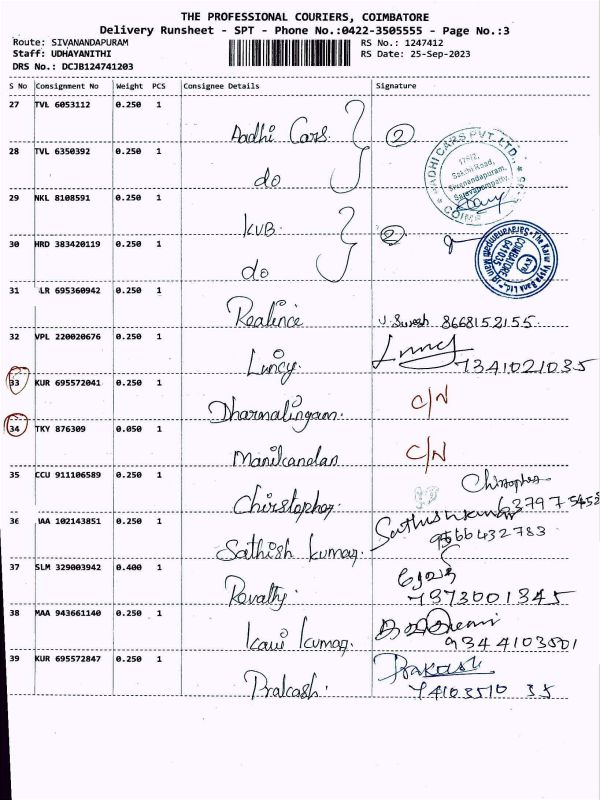 THE PROFESSIONAL COURIERS, COIMBATORE
Delivery Runsheet - SPT - Phone No.:0422-3505555 - Page No.:3
Route: SIVANANDAPURAM
Staff: UDHAYANITHI
DRS No.: DCJB124741203
RS No.: 1247412
RS Date: 25-Sep-2023
S No Consignment No Weight PCS Consignee Details Signature
27 TVL 6053112 0.250 1
Aadhi Cars. 2
28 TVL 6350392 0.250 1
do
29 NKL 8108591 0.250 1
KVB. 2
30 HRD 383420119 0.250 1
do
31 LR 695360942 0.250 1
Realince 8668152155
32 VPL 220020676 0.250 1
Luncy. 7341021035
33 KUR 695572041 0.250 1
Dharmalingam. C/N
34 TKY 876309 0.050 1
Manikandan C/N
35 CCU 911106589 0.250 1
Chirstopher.
36 AA 102143851 0.250 1
Sathish kumar. Sathishkumar 9566432783
37 SLM 329003942 0.400 1
Rovalty. 7373001345
38 MAA 943661140 0.250 1
Kavi kumar
39 KUR 695572847 0.250 1
Prakash. Prakash
74103510 35